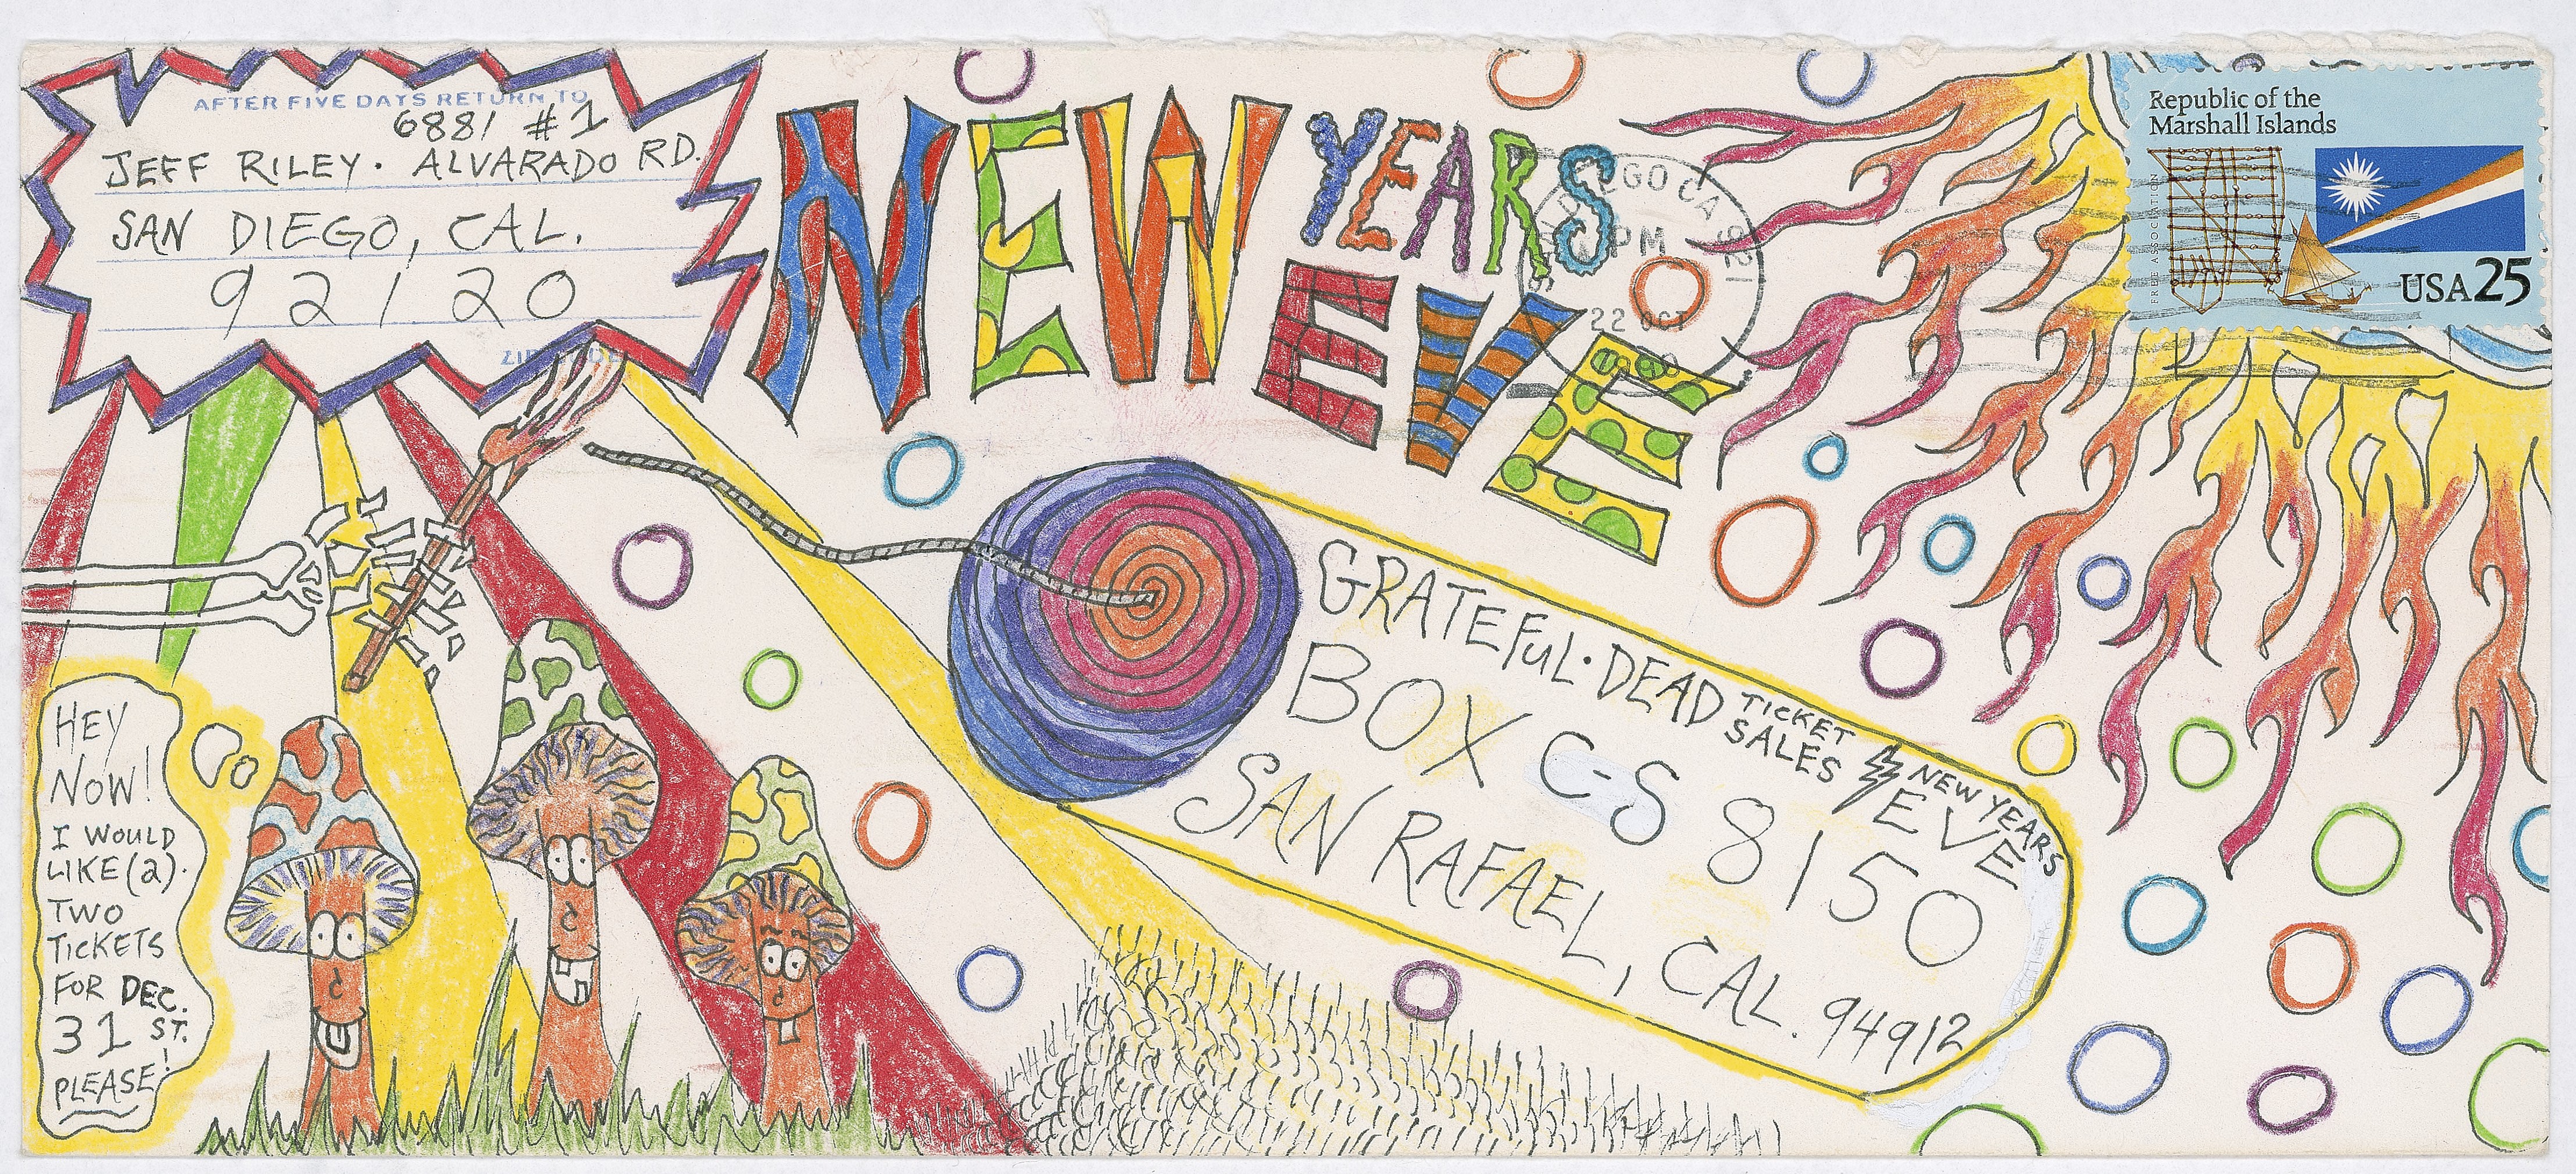 AFTER FIVE DAYS RETURN TO
6881 #1
JEFF RILEY. ALVARADO RD.
SAN DIEGO, CAL.
92120
NEW YEARS
EVE
22 OCT
PM
Republic of the
Marshall Islands
FREE ASSOCIATION
USA25
GRATEFUL·DEAD TICKET SALES NEW YEARS EVE
BOX C-S 8150
SAN RAFAEL, CAL. 94912
HEY
NOW!
I WOULD
LIKE (2).
TWO
TICKETS
FOR DEC.
31 ST.
PLEASE!